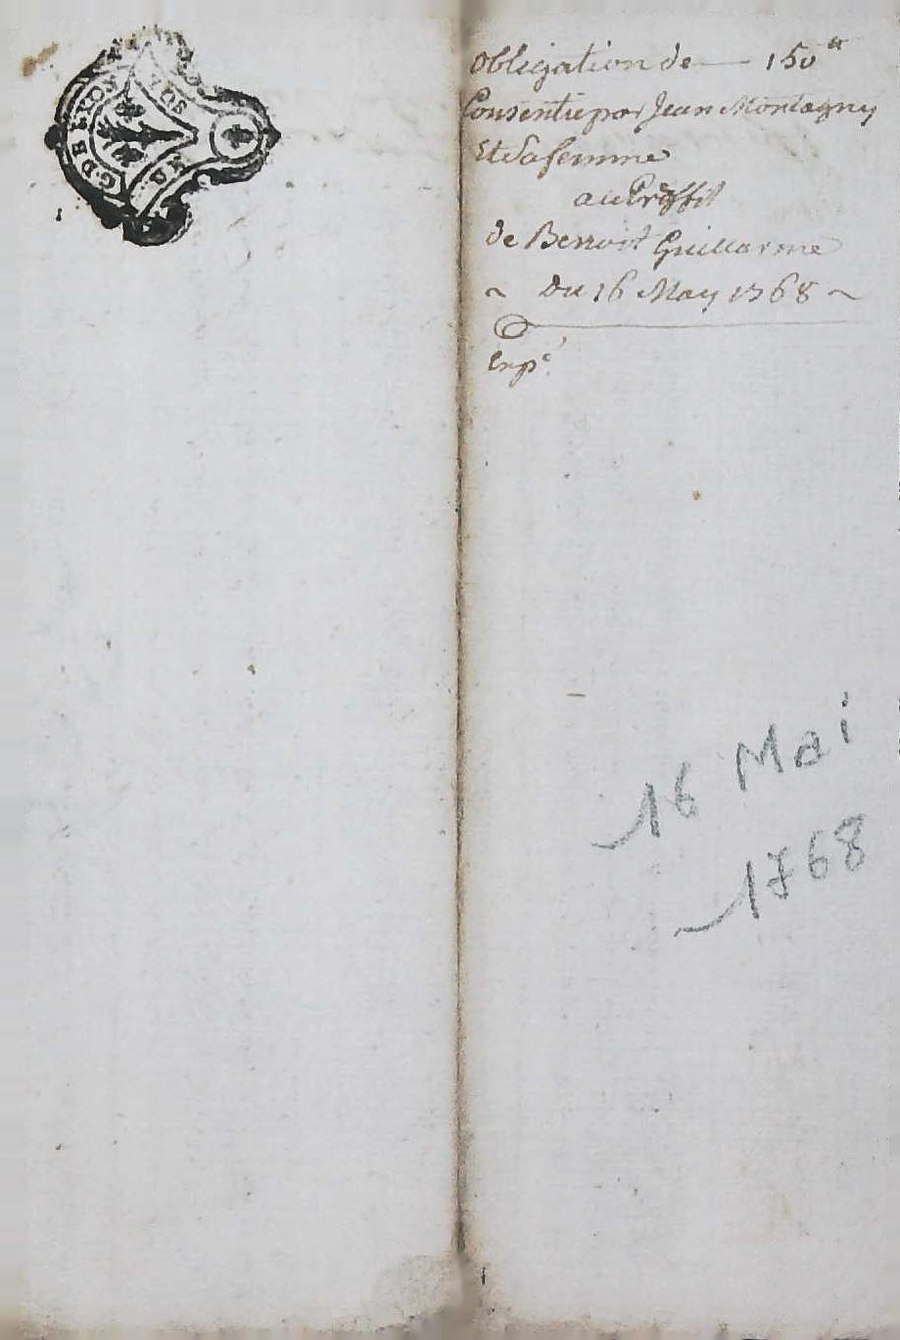 G. DE LYON
SOLS
Obligation de — 150 ₶
Consentie par Jean Montagny
Et Sa femme
au Proffit
de Benoist Guillarme
~ Du 16 May 1768 ~
Exp.
16 Mai
1768